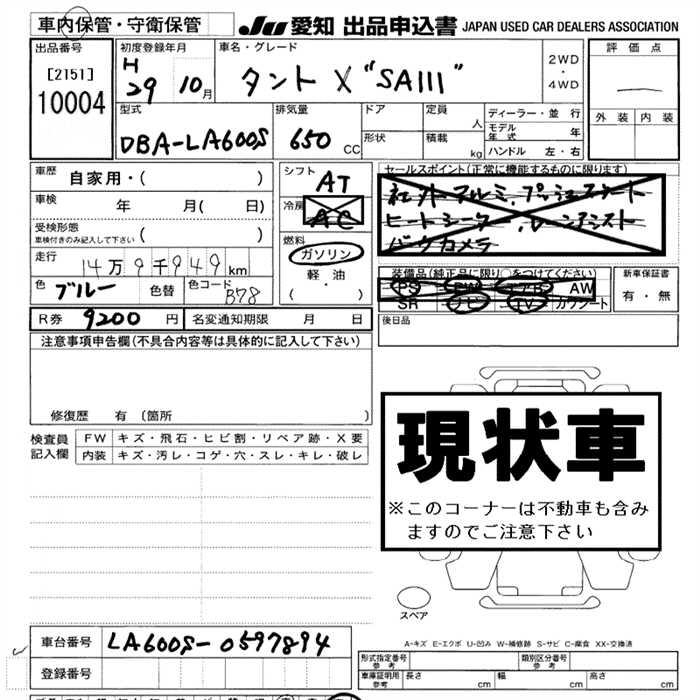 車内保管・守衛保管 JU 愛知 出品申込書 JAPAN USED CAR DEALERS ASSOCIATION
出品番号 [2151] 10004
初度登録年月 H 29 10月
車名・グレード タント X "SAIII"
2WD・4WD
評価点 —
外装 内装
型式 DBA-LA600S
排気量 650 CC
ドア 形状
定員 人
積載 kg
ディーラー・並行
モデル年式 年
ハンドル 左・右
車歴 自家用・( )
車検 年 月( 日)
受検形態 車検付きのみ記入して下さい ( )
走行 14万9千949km
色 ブルー 色替 色コード B78
シフト AT
冷房 AC
燃料 ガソリン 軽油 ( ・ )
セールスポイント(正常に機能するものに限ります)
社外アルミ、プッシュスタート
ヒートシーター、レーンアシスト
バックカメラ
装備品(純正品に限り○をつけてください)
PS PW エアB AW
SR ナビ TV カワシート
新車保証書 有・無
R券 9200円 名変通知期限 月 日
後日品
注意事項申告欄(不具合内容等は具体的に記入して下さい)
修復歴 有(箇所 )
検査員記入欄
FW キズ・飛石・ヒビ割・リペア跡・X要
内装 キズ・汚レ・コゲ・穴・スレ・キレ・破レ
現状車
※このコーナーは不動車も含み
ますのでご注意下さい
スペア
A-キズ E-エクボ U-凹み W-補修跡 S-サビ C-腐食 XX-交換済
車台番号 LA600S-0597894
登録番号
形式指定番号 参考
類別区分番号 参考
車庫証明用 参考 長さ cm 幅 cm 高さ cm